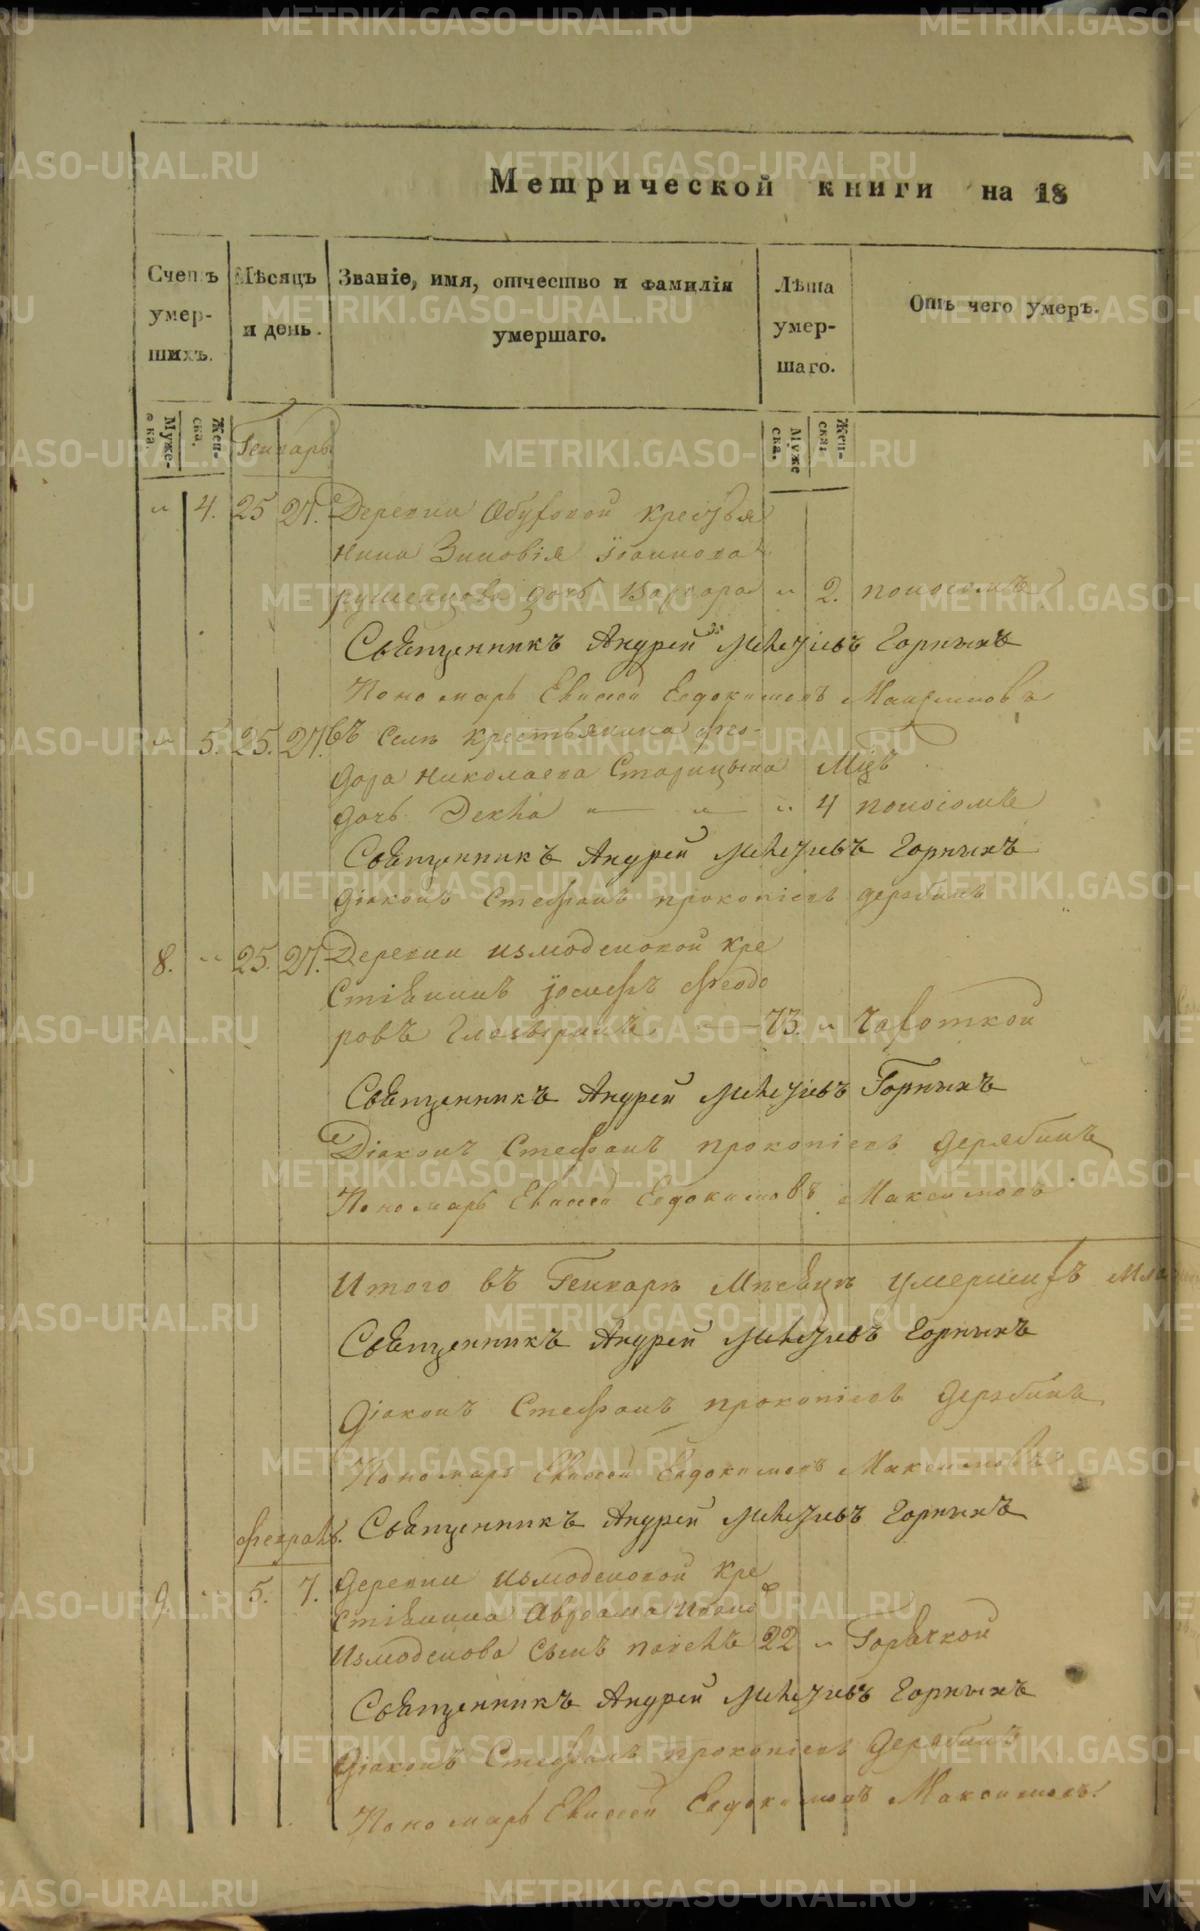 Метрической книги на 18
Счетъ умер- шихъ.
Мѣсяцъ и день.
Званіе, имя, отчество и фамилія умершаго.
Лѣта умер- шаго.
Отъ чего умеръ.
Муже- ска.
Жен- ска.
Генварь
Муже ска.
Жен- ска.
" 4. 25 27. Деревни Обуховой крестья
нина Зиновія Іоаннова
дочь Варвара " 2. поносомъ
Священникъ Андрей Горныхъ
Пономарь Евдокимовъ Максимовъ
" 5. 25. 27. въ селѣ крестьянина Ѳео-
дора Николаева Старицына Мцъ
дочь Декла " " 4 поносомъ
Священникъ Андрей Горныхъ
Діаконъ Стефанъ Прокопіевъ Дерябинъ
8. " 25. 27. Деревни Измоденовой кре
стіянинъ Іосифъ Феодо
ровъ 73. " чахоткой
Священникъ Андрей Горныхъ
Діаконъ Стефанъ Прокопіевъ Дерябинъ
Пономарь Евдокимовъ Максимовъ
Итого въ Генварѣ Мѣсяцѣ умершихъ мла
Священникъ Андрей Горныхъ
Діаконъ Стефанъ Прокопіевъ Дерябинъ
Пономарь Евдокимовъ Максимовъ
Февраль. Священникъ Андрей Горныхъ
9. " 5. 7. Деревни Измоденовой кре
стіянина Авраама
Измоденова сынъ Павелъ 22 " Горячкой
Священникъ Андрей Горныхъ
Діаконъ Стефанъ Прокопіевъ Дерябинъ
Пономарь Евдокимовъ Максимовъ
METRIKI.GASO-URAL.RU